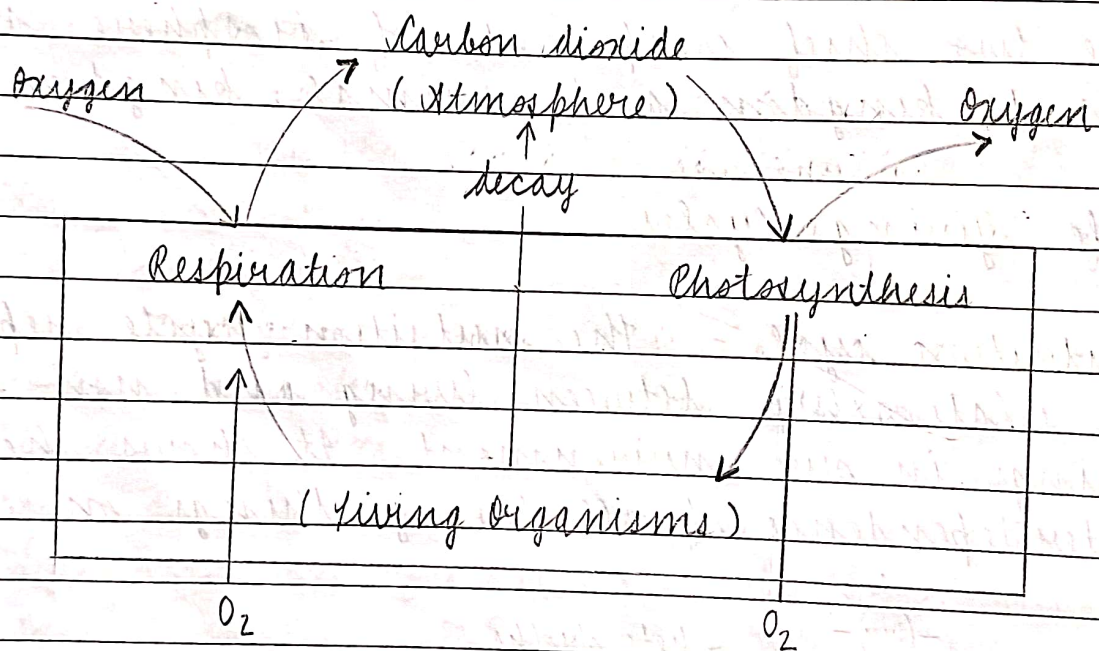 Carbon dioxide
Oxygen
(Atmosphere)
Oxygen
decay
Respiration
Photosynthesis
(Living Organisms)
O₂
O₂